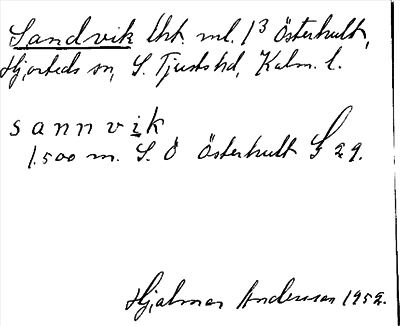 Sandvik tht. ml. 1³ Österhult,
Hjorteds sn, S. Tjusts hd, Kalm. l.
sannvik
1.500 m. S. Ö Österhult G 29.
Hjalmar Andersson 1952.